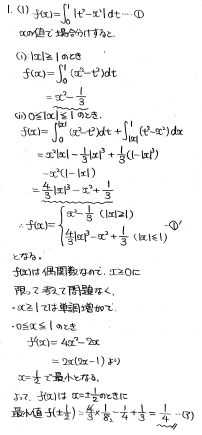 1. (1) f(x)=∫₀¹|t²-x²|dt …①
xの値で場合分けすると、
(i) |x|≧1のとき
f(x)=∫₀¹(x²-t²)dt
=x²-1/3
(ii) 0≦|x|≦1のとき、
f(x)=∫₀^|x|(x²-t²)dt+∫_|x|^1(t²-x²)dx
=x²|x|-1/3|x|³+1/3(1-|x|³)
-x²(1-|x|)
=4/3|x|³-x²+1/3
∴f(x)={x²-1/3 (|x|≧1)
4/3|x|³-x²+1/3 (|x|≦1) …①'
となる。
f(x)は偶関数なので、x≧0に
限って考えて問題なく、
・x≧1では単調増加で
・0≦x≦1のとき
f'(x)=4x²-2x
=2x(2x-1)より
x=1/2で最小となる。
よって、f(x)はx=±1/2のときに
最小値f(±1/2)=4/3×1/8-1/4+1/3=1/4 …(答)